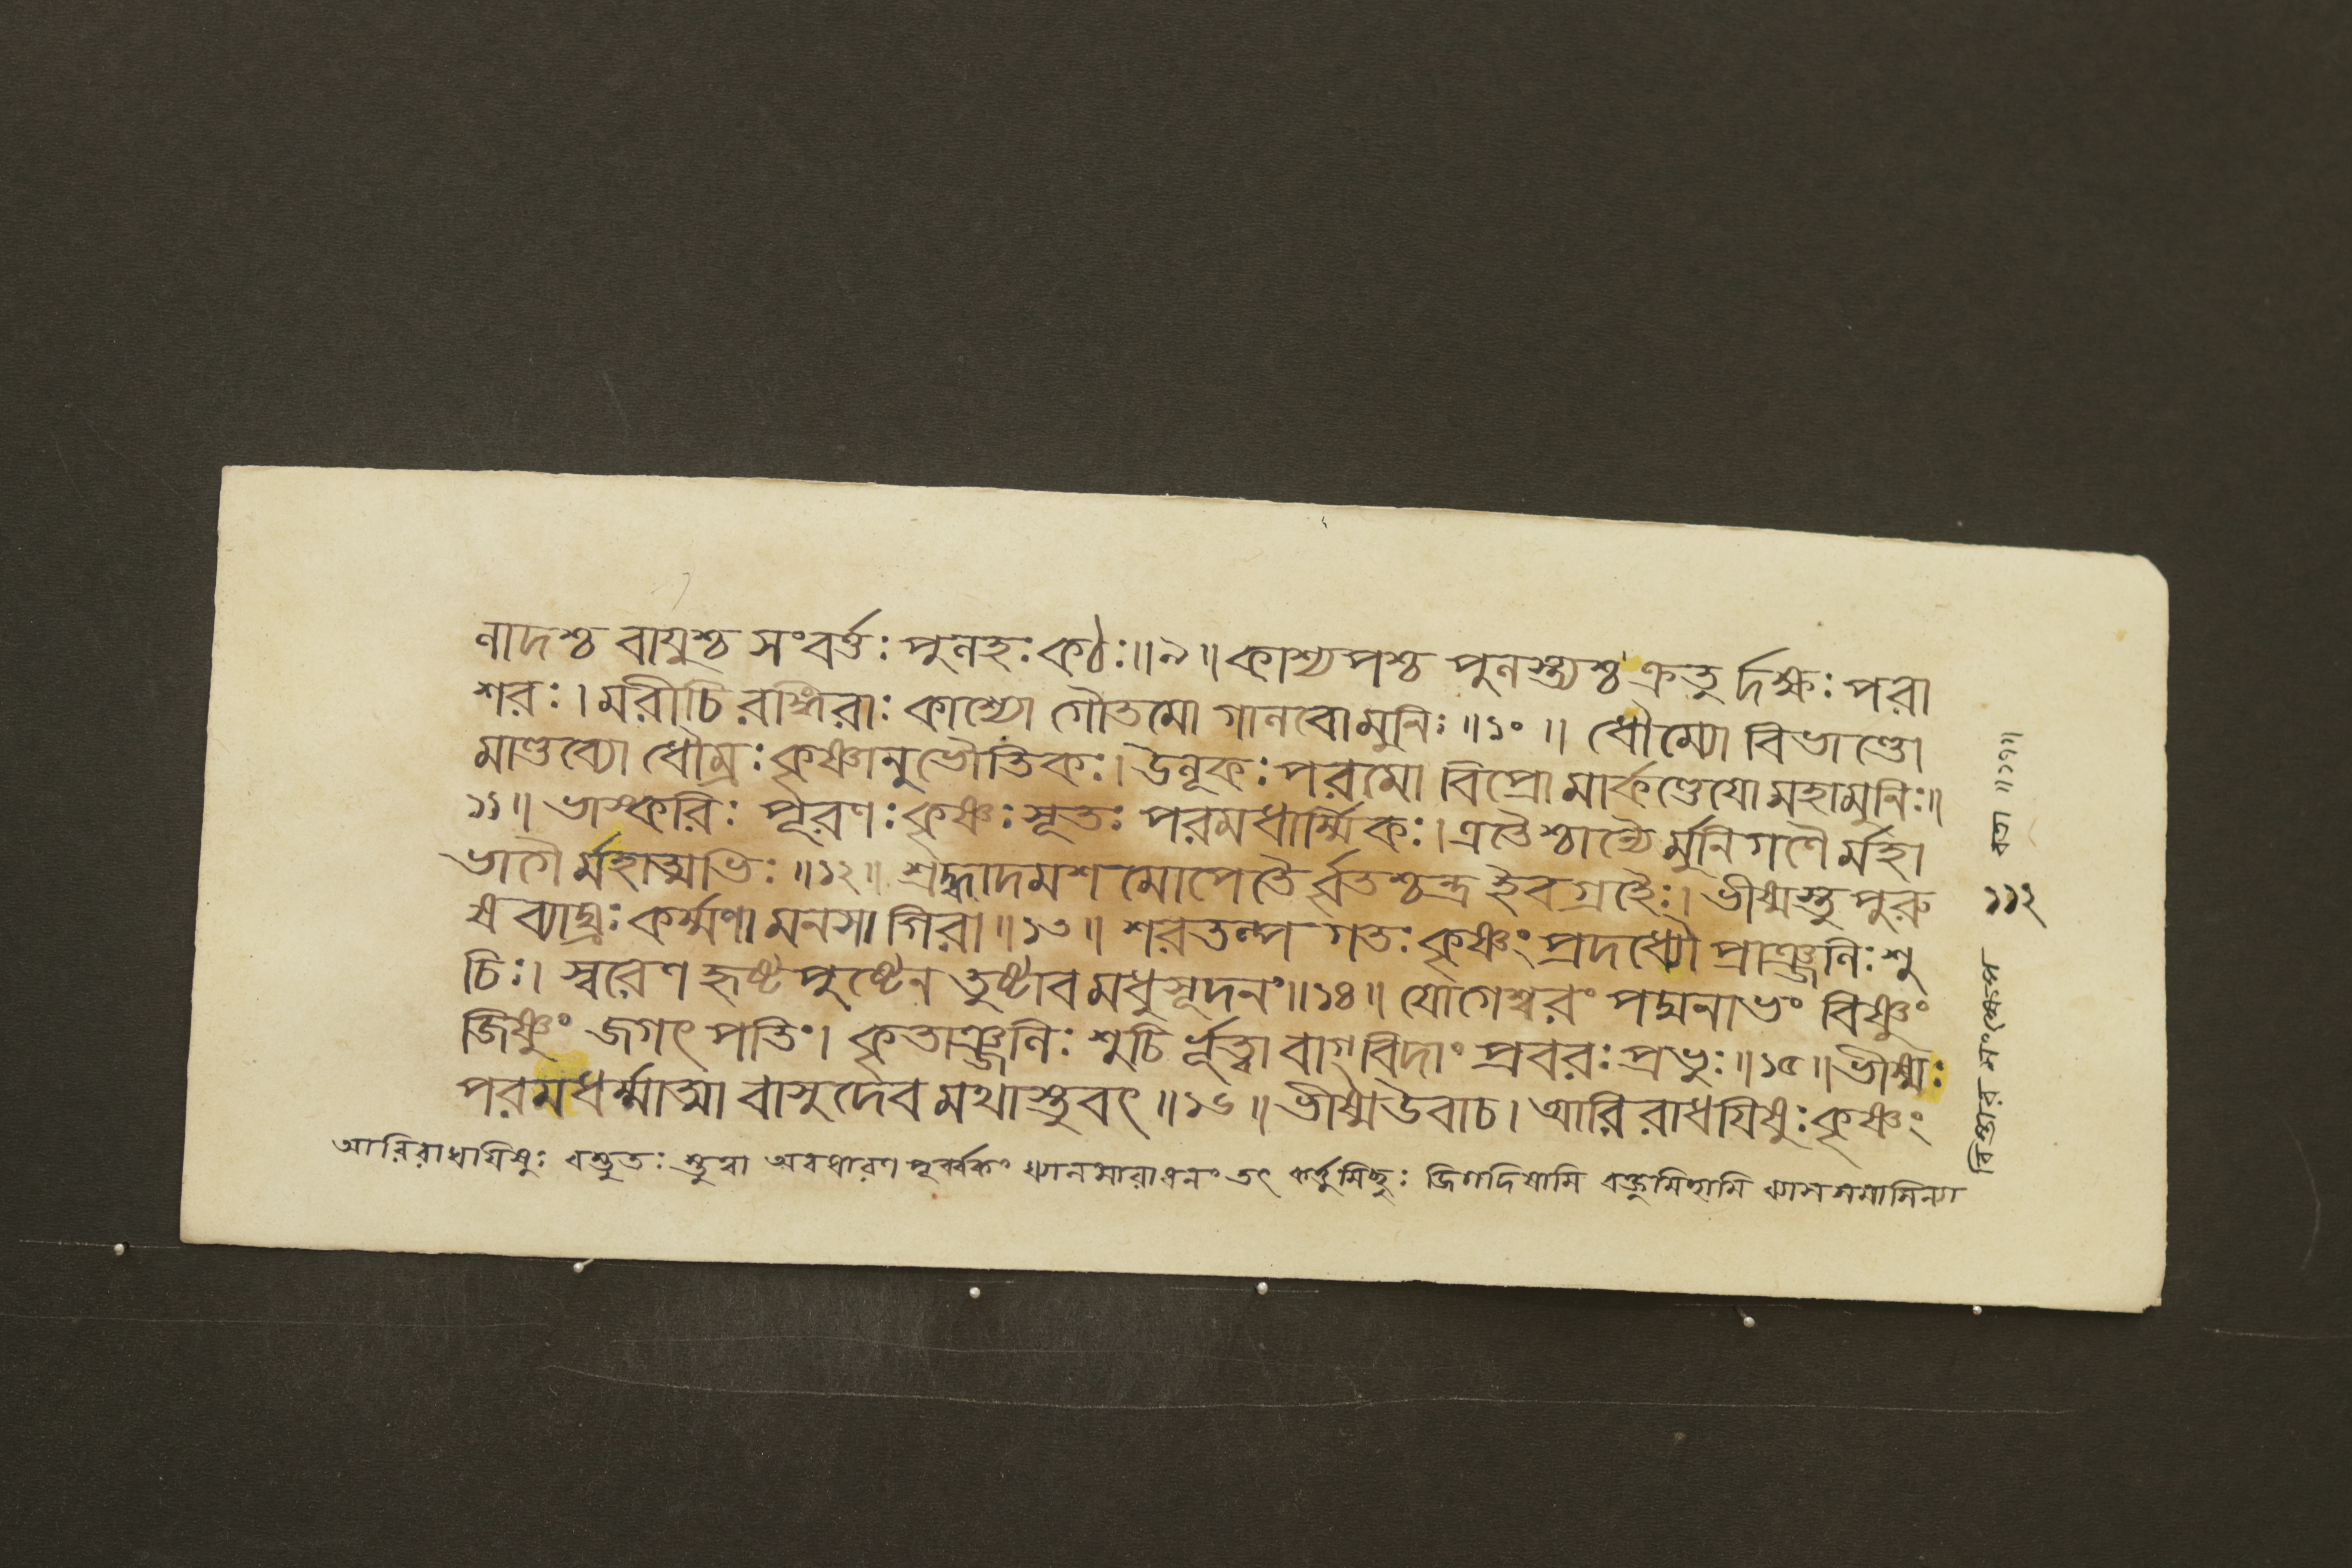 ণাদশ্চ বায়ুশ্চ সংবর্ত্তঃ পুনহঃ কঠঃ॥৯॥কাশ্যপশ্চ পুনস্ত্যশ্চ ক্রতু র্দক্ষঃ পরা
শরঃ। মরীচি রঙ্গিরাঃ কাশ্যো গৌতমো গানবো মুনিঃ॥১০॥ ধৌম্যো বিভাণ্ডো
মাণ্ডব্যো ধৌম্রঃ কৃষ্ণানুভৌতিকঃ। উনূকঃ পরমো বিপ্রো মার্কণ্ডেযো মহামুনিঃ॥
১১॥ ভাস্করিঃ পূরণঃ কৃষ্ণঃ সূতঃ পরমধার্ম্মিকঃ। এতৈশ্চান্যৈ র্মুনিগণৈ র্মহা
ভাগৈ র্মহাত্মভিঃ॥১২॥ শ্রদ্ধাদমশমোপেতৈ র্বৃতশ্চন্দ্র ইব গ্রহৈঃ। ভীষ্মস্তু পুরু
ষ ব্যাঘ্রঃ কর্ম্মণা মনসা গিরা॥১৩॥ শরতল্প গতঃ কৃষ্ণং প্রদধ্যৌ প্রাঞ্জনিঃ শু
চিঃ। স্বরেণ হৃষ্ট পুষ্টেন তুষ্টাব মধুসূদনং॥১৪॥ যোগেশ্বরং পদ্মনাভং বিষ্ণুং
জিষ্ণুং জগৎ পতিং। কৃতাঞ্জনিঃ শুচি র্ভূত্বা বাগ্ বিদাং প্রবরঃ প্রভুঃ॥১৫॥ভীষ্মঃ
পরমধর্ম্মাত্মা বাসুদেব মথাস্তুবৎ॥১৬॥ ভীষ্মউবাচ। আরিরাধযিষুঃ কৃষ্ণং
আরিরাধযিষুঃ অবধারণ পূর্ব্বকং তৎ কর্ত্তুমিচ্ছুঃ জিগদিষামি
১১২
॥১৭॥